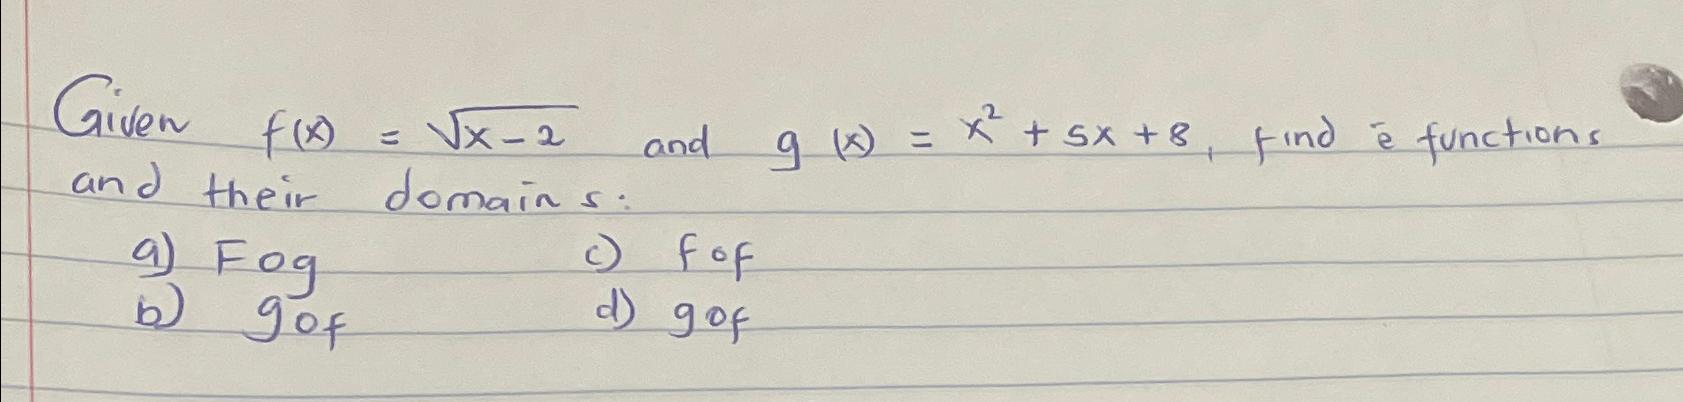 Given f(x) = √x-2 and g(x) = x² + 5x + 8, find ē functions
and their domains:
a) Fog c) fof
b) gof d) gof